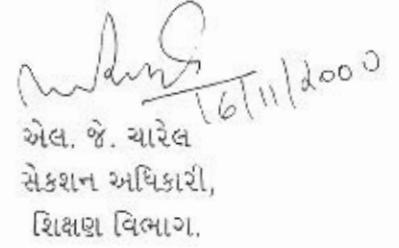 16/11/2000
એલ. જે. ચારેલ
સેક્શન અધિકારી,
શિક્ષણ વિભાગ.